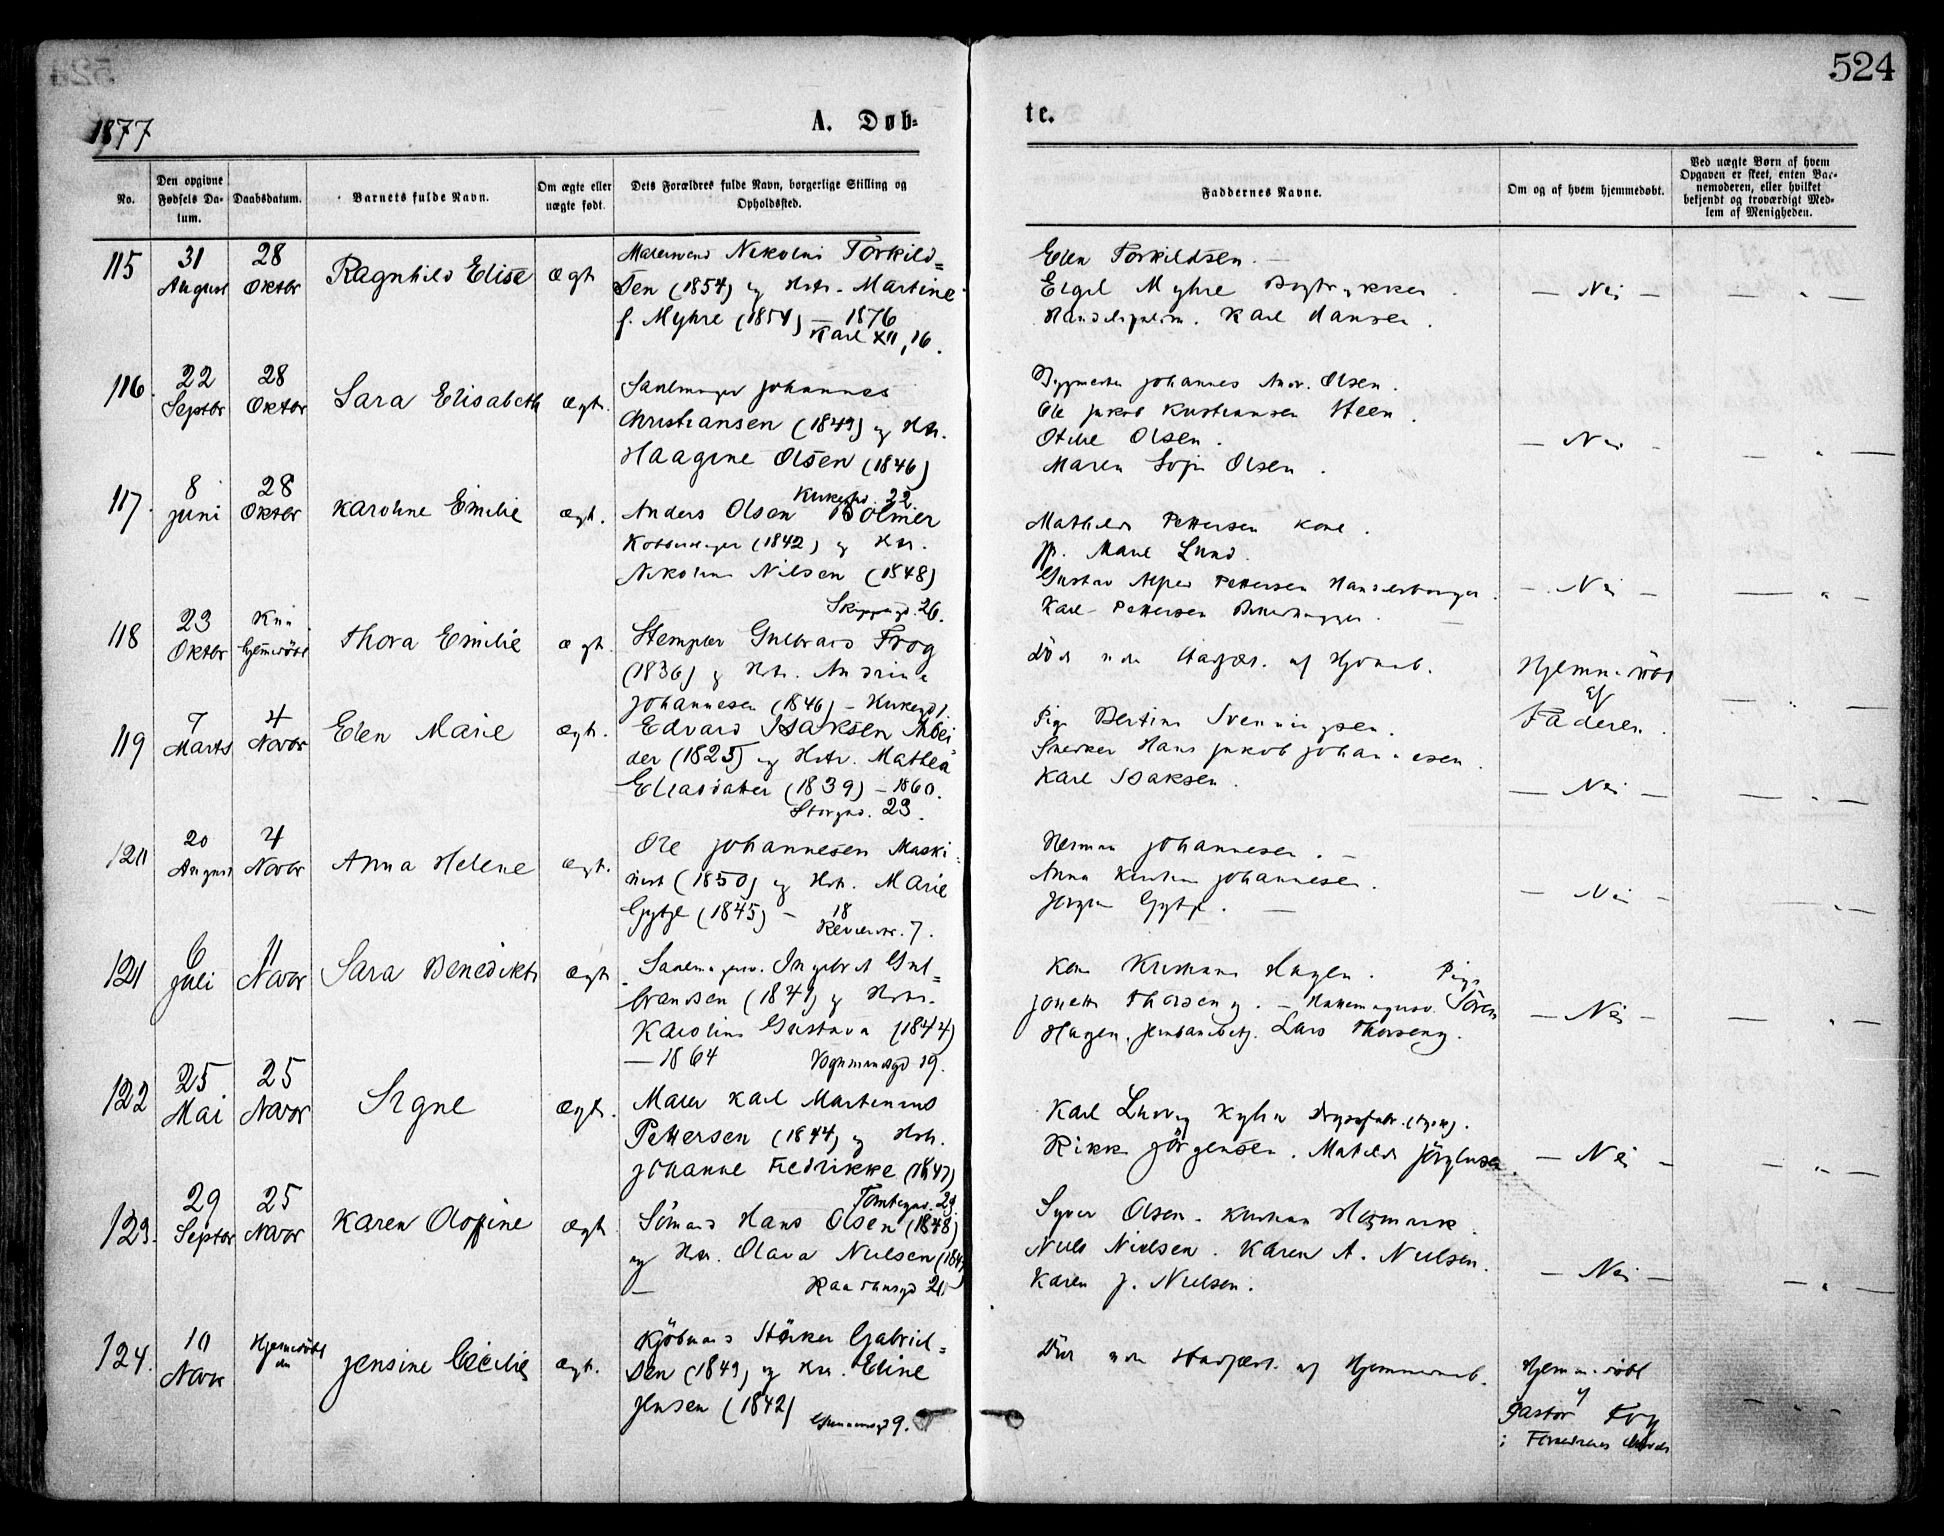 524
1877
A. Døb-
te.
No.
Den opgivne Fødsels Da-tum.
Daabsdatum.
Barnets fulde Navn.
Om ægte eller uægte født.
Dets Forældres fulde Navn, borgerlige Stilling og Opholdssted.
Faddernes Navne.
Om og af hvem hjemmedøbt.
Ved uægte Børn af hvem Opgaven er skeet, enten Bar-nemoderen, eller hvilket bekjendt og troværdigt Med-lem af Menigheden.
115
31 August
28 Oktbr
Ragnhild Elise
ægt
Nikolai Torkild=
sen (1854) og Hstr. Martine
f. Myhre (1854) — 1876
Karl XII, 16.
Elen Torkildsen.
Eigel Myhre
Karl Hansen.
— Nei —
116.
22 Septbr
28 Oktbr
Sara Elisabeth
ægt.
Johannes
Christiansen (1849) og Hstr.
Haagine Olsen (1846)
Johannes Andr. Olsen.
Ole Jakob Kristiansen Steen.
Otilie Olsen.
Maren Sofie Olsen.
— Nei —
117.
8 Juni
28 Oktbr
Karoline Emilie
ægt.
Kirkegd. 22
Anders Olsen Bolmer
(1842) og Hstr.
Nikoline Nilsen (1848)
Skippergd. 26.
Mathilde Pettersen Kone.
Marie Lund.
Gustav Alfred Pettersen
Karl Pettersen
— Nei —
118
23 Oktbr
hjemmedöbt
Thora Emilie
ægt.
Stempler Gulbrand Frog
(1836) og Hstr. Andrine
Johannesen (1846) — Kirkegd 1.
Död uden Stadfæst. af Hjemmedb.
Hjemmedöbt
af
Faderen.
119
7 Marts
4 Novbr
Elen Marie
ægt.
Edvard Isaksen Arbei
der (1825) og Hstr. Mathea
Eliasdatter (1839) — 1860.
Storgd. 23.
Pige Bertine Svenningsen.
Snedker Hans Jakob Johannesen.
Karl Isaksen.
— Nei —
120
20 August
4 Novbr
Anna Helene
ægt.
Ole Johannesen Maski-
nist (1850) og Hstr. Marie
Gytze (1845) —
7.
Herman Johannesen. —
Anna Kirstine Johannesen.
Jörgen Gytze. —
— Nei —
121
6 Juli
11 Novbr
Sara Benedikte
ægt
Ingebret Gul=
brandsen (1841) og Hstr.
Karoline Gustava (1844)
— 1864
Vognmandsgd 19.
Kone Kristiane Hagen. Pige
Jonette Thorseng. — Hattemagersv. Sören
Hagen, Jernbanebetj. Lars Thorseng.
— Nei —
122
25 Mai
25 Novbr
Signe
ægt.
Maler Karl Martinius
Pettersen (1844) og Hstr.
Johanne Fredrikke (1847)
Tomtegd. 23.
Karl Ludvig Kyhn
Rikke Jörgensen. Matilde Jörgensen.
— Nei —
123.
29 Septbr
25 Novbr
Karen Olofine
ægt
Sömand Hans Olsen (1848)
og Hstr. Olava Nielsen
— Raadhusgd 21
Syver Olsen. Kristian Hegmark
Niels Nielsen. Karen A. Nielsen.
Karen J. Nielsen.
— Nei —
124.
10 Novbr
Hjemmedöbt
Jensine Cecilie
ægt.
Kjöbmand Stärker Gabriel=
sen (1849) og Hstr. Eline
Jensen (1842)
9.
Död uden Stadfæst. af Hjemmedaab.
Hjemmedöbt
af
Pastor
i Forældrenes